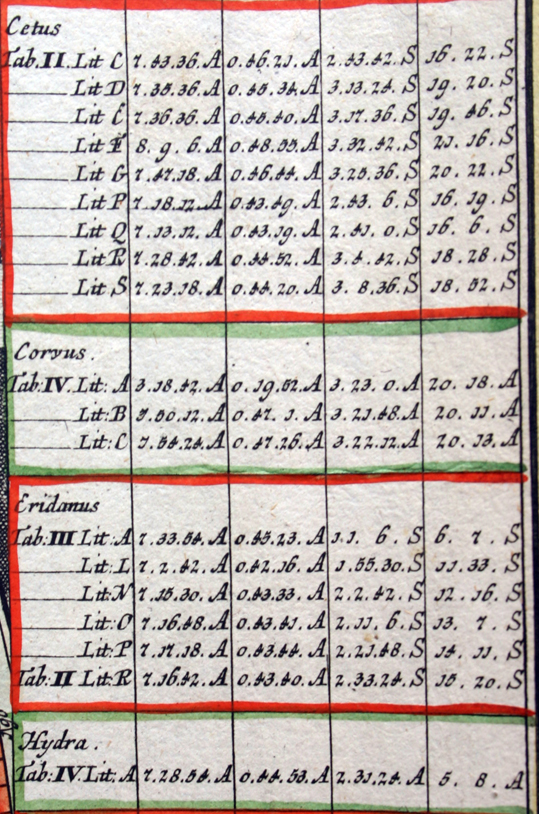 Cetus
Tab. II. Lit C 7.43.36. A 0.46.21. A 2.43.42. S 16. 22. S
Lit D 7.35.36. A 0.45.34. A 3.13.24. S 19. 20. S
Lit E 7.36.36. A 0.45.40. A 3.17.36. S 19. 46. S
Lit F 8. 9. 6. A 0.48.55. A 3.32.42. S 21. 16. S
Lit G 7.47.18. A 0.46.44. A 3.25.36. S 20. 22. S
Lit P 7.18.12. A 0.43.49. A 2.43. 6. S 16. 19. S
Lit Q 7.13.12. A 0.43.19. A 2.41. 0. S 16. 6. S
Lit R 7.28.42. A 0.44.52. A 3.4.42. S 18. 28. S
Lit S 7.23.18. A 0.44.20. A 3. 8.36. S 18. 52. S
Corvus.
Tab: IV. Lit: A 3.18.42. A 0.19.52. A 3.23. 0. A 20. 18. A
Lit: B 7.50.12. A 0.47. 1. A 3.21.48. A 20. 11. A
Lit: C 7.54.24. A 0.47.26. A 3.22.12. A 20. 13. A
Eridanus
Tab: III Lit: A 7.33.54. A 0.45.23. A 1.1. 6. S 6. 7. S
Lit: L 7.2.42. A 0.42.16. A 1.55.30. S 11.33. S
Lit: N 7.15.30. A 0.43.33. A 2.2.42. S 12. 16. S
Lit: O 7.16.48. A 0.43.41. A 2.11. 6. S 13. 7. S
Lit: P 7.17.18. A 0.43.44. A 2.21.48. S 14. 11. S
Tab: II Lit: R 7.16.42. A 0.43.40. A 2.33.24. S 15. 20. S
Hydra.
Tab: IV. Lit: A 7.28.54. A 0.44.53. A 2.31.24. A 5. 8. A